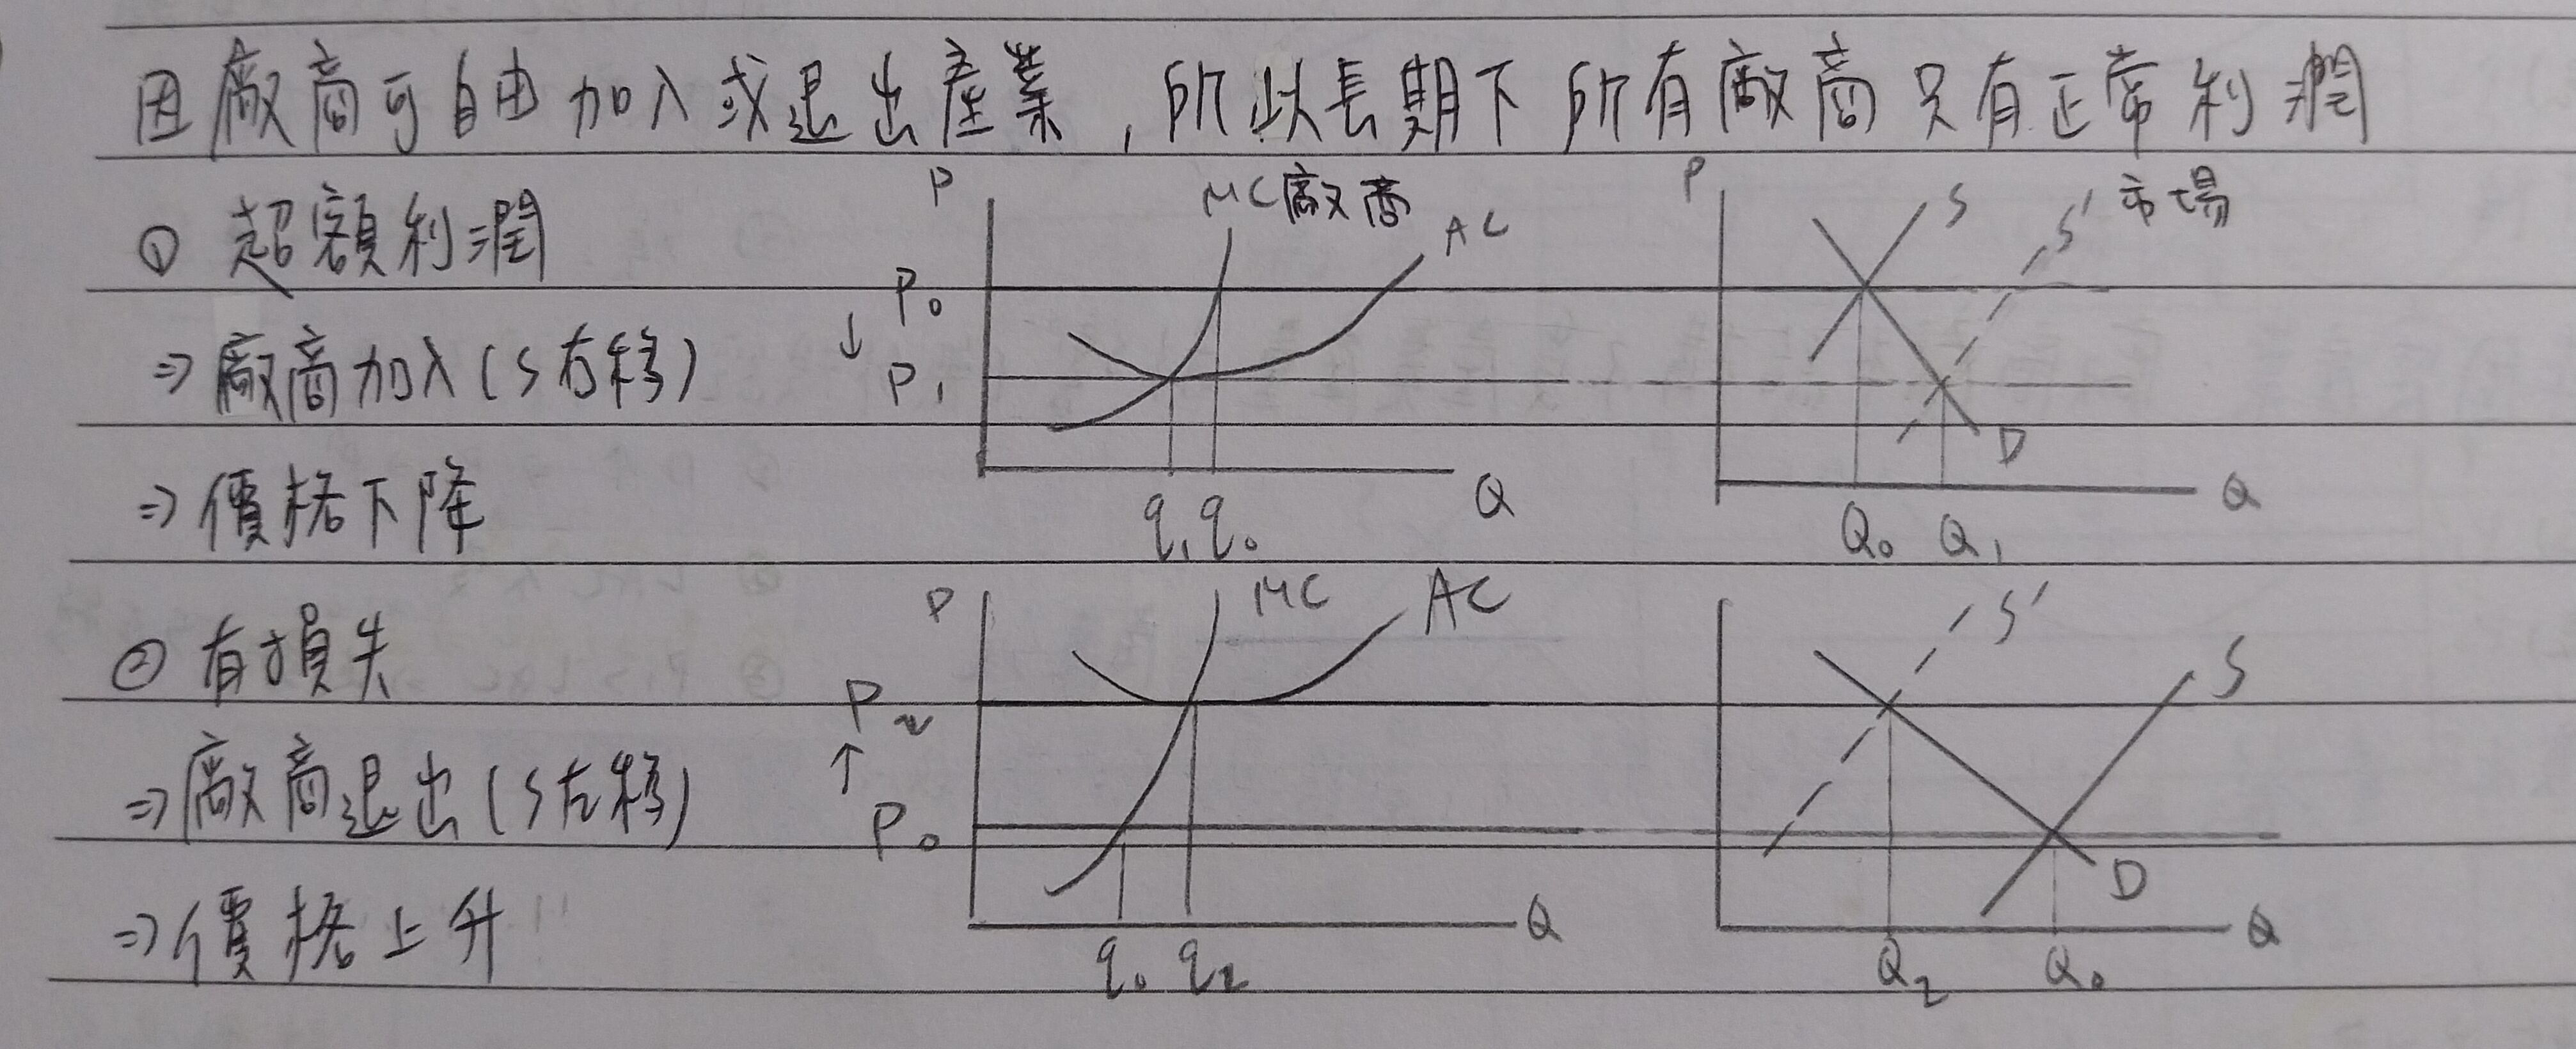 因廠商可自由加入或退出產業,所以長期下所有廠商只有正常利潤
① 超額利潤
⇒ 廠商加入(S右移)
⇒ 價格下降
P
MC 廠商
AC
P₀
↓
P₁
q₁ q₀
Q
P
S
S' 市場
D
Q₀ Q₁
Q
② 有損失
⇒ 廠商退出(S左移)
⇒ 價格上升
P
MC
AC
P₂
↑
P₀
q₀ q₂
Q
S'
S
D
Q₂ Q₀
Q